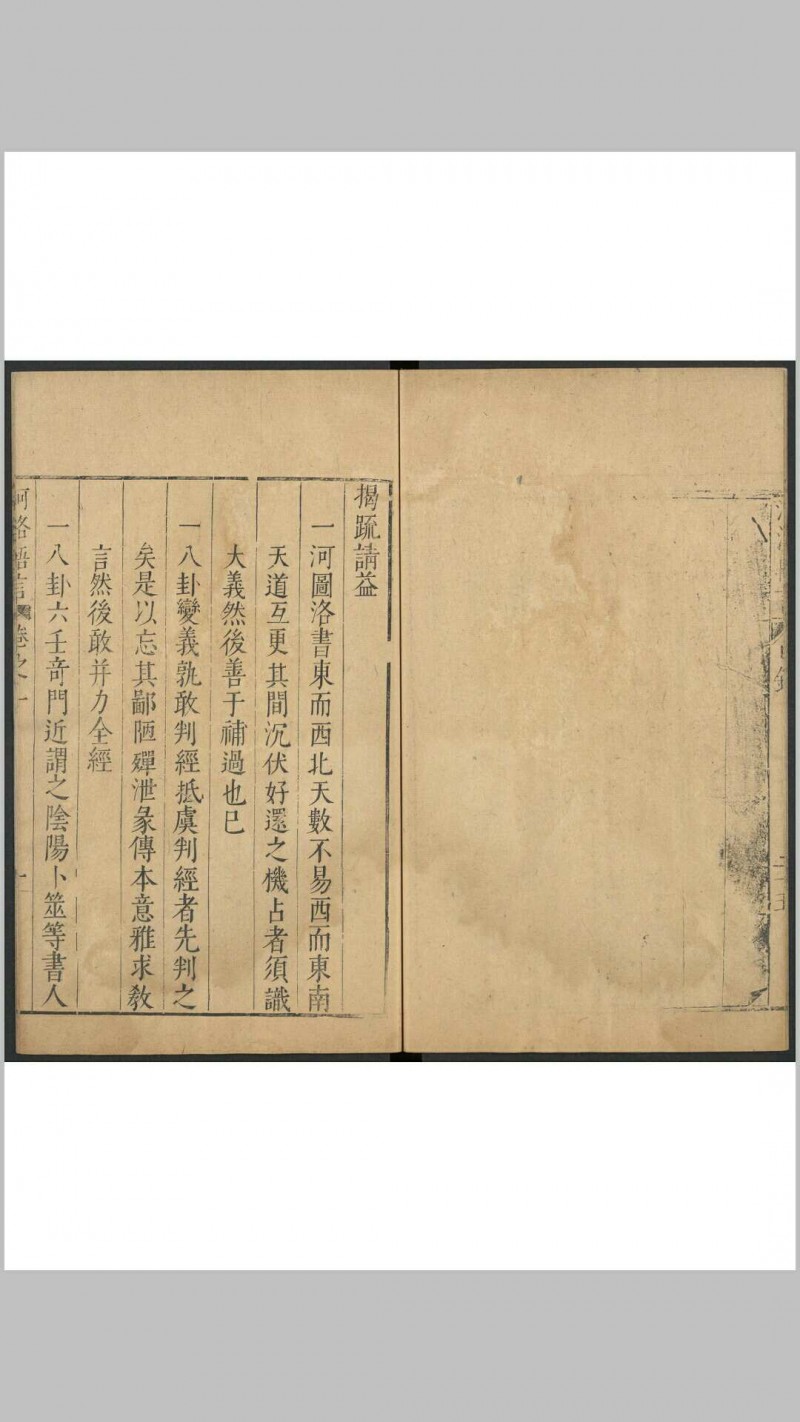 揭䟽請益
一河圖洛書東而西北天數不易西而東南
天道互更其間沉伏好還之機占者須識
大義然後善于補過也已
一八卦變義孰敢判經抵虞判經者先判之
矣是以忘其鄙陋殫泄彖傳本意雅求教
言然後敢并力全經
一八卦六壬竒門近謂之陰陽卜筮等書人
河洛 言 卷之一